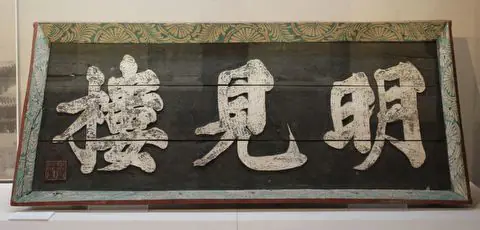 明見樓